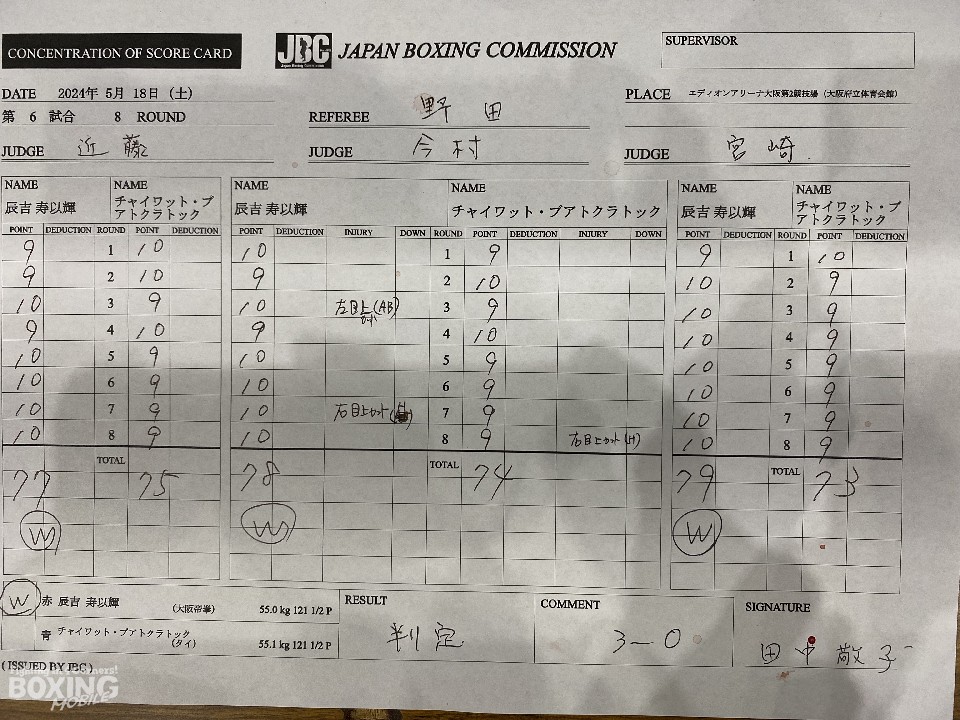 CONCENTRATION OF SCORE CARD
JBC
Japan Boxing Commission
JAPAN BOXING COMMISSION
SUPERVISOR
DATE 2024年 5月 18日 (土)
第 6 試合 8 ROUND
REFEREE 野田
PLACE エディオンアリーナ大阪第2競技場 (大阪府立体育会館)
JUDGE 近藤
JUDGE 今村
JUDGE 宮崎
NAME NAME NAME NAME NAME NAME
辰吉 寿以輝 チャイワット・ブアトクラトック 辰吉 寿以輝 チャイワット・ブアトクラトック 辰吉 寿以輝 チャイワット・ブアトクラトック
POINT DEDUCTION ROUND POINT DEDUCTION POINT DEDUCTION INJURY DOWN ROUND POINT DEDUCTION INJURY DOWN POINT DEDUCTION ROUND POINT DEDUCTION
9 1 10 10 1 9 9 1 10
9 2 10 9 2 10 10 2 9
10 3 9 10 左目上カット(AB) 3 9 10 3 9
9 4 10 9 4 10 10 4 9
10 5 9 10 5 9 10 5 9
10 6 9 10 6 9 10 6 9
10 7 9 10 右目上カット 7 9 10 7 9
10 8 9 10 8 9 右目上カット(H) 10 8 9
77 TOTAL 75 78 TOTAL 74 79 TOTAL 73
W W W
W 赤 辰吉 寿以輝 (大阪帝拳) 55.0 kg 121 1/2 P
青 チャイワット・ブアトクラトック (タイ) 55.1 kg 121 1/2 P
RESULT 判定
COMMENT 3-0
SIGNATURE 田中敬子
( ISSUED BY JBC )
BOXING
MOBILE